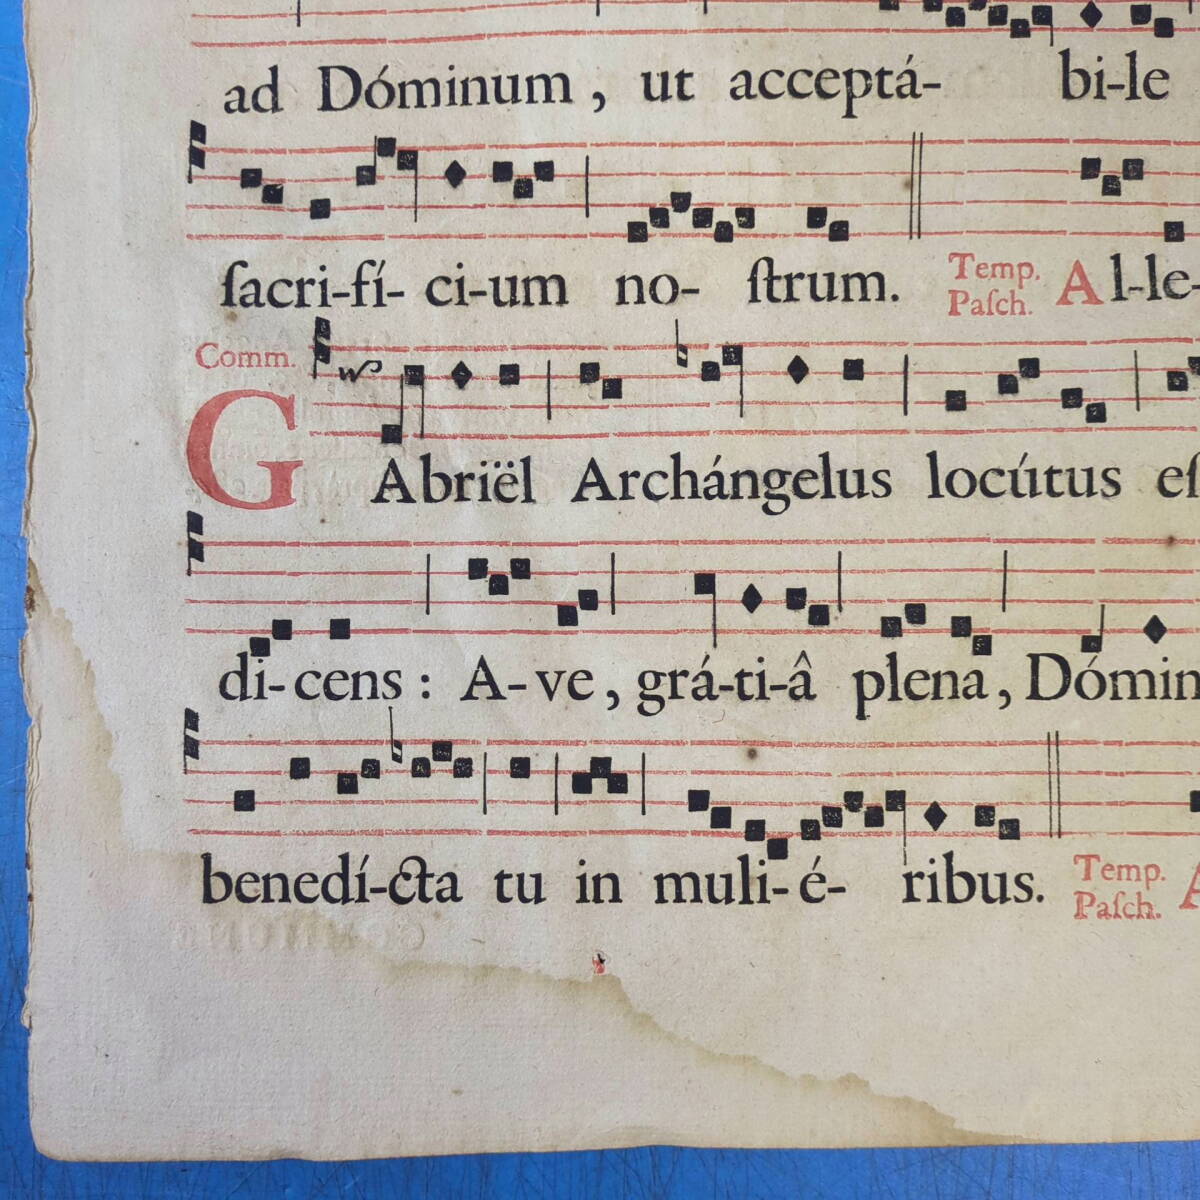 ad Dóminum, ut acceptá- bi-le
ſacri-fí- ci-um no- ſtrum. Temp. Paſch. Al-le-
Comm.
GAbriël Archángelus locútus eſ
di-cens: A-ve, grá-ti-â plena, Dómin
benedí-cta tu in muli-é- ribus. Temp. Paſch. A